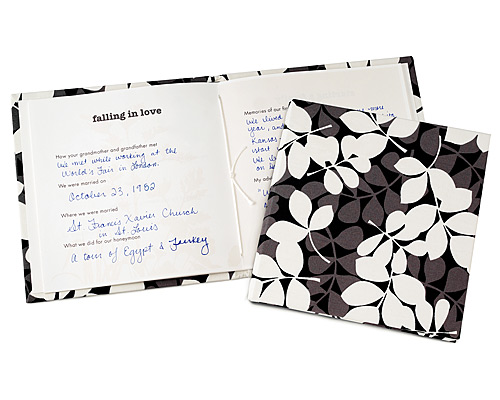 falling in love
How your grandmother and grandfather met
We met while working at the
World's Fair in London.
We were married on
October 23, 1952
Where we were married
St. Francis Xavier Church
in St. Louis
What we did for our honeymoon
A tour of Egypt & Turkey
Memories of our
We lived
year, and
Kansas
start
We
My
"